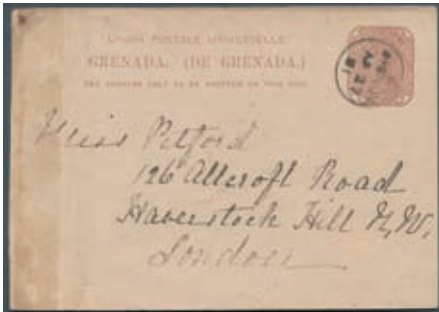 UNION POSTALE UNIVERSELLE.
GRENADA. (DE GRENADA.)
THE ADDRESS ONLY TO BE WRITTEN ON THIS SIDE
Miss Pitford
126 Allcroft Road
Haverstock Hill N.W.
London